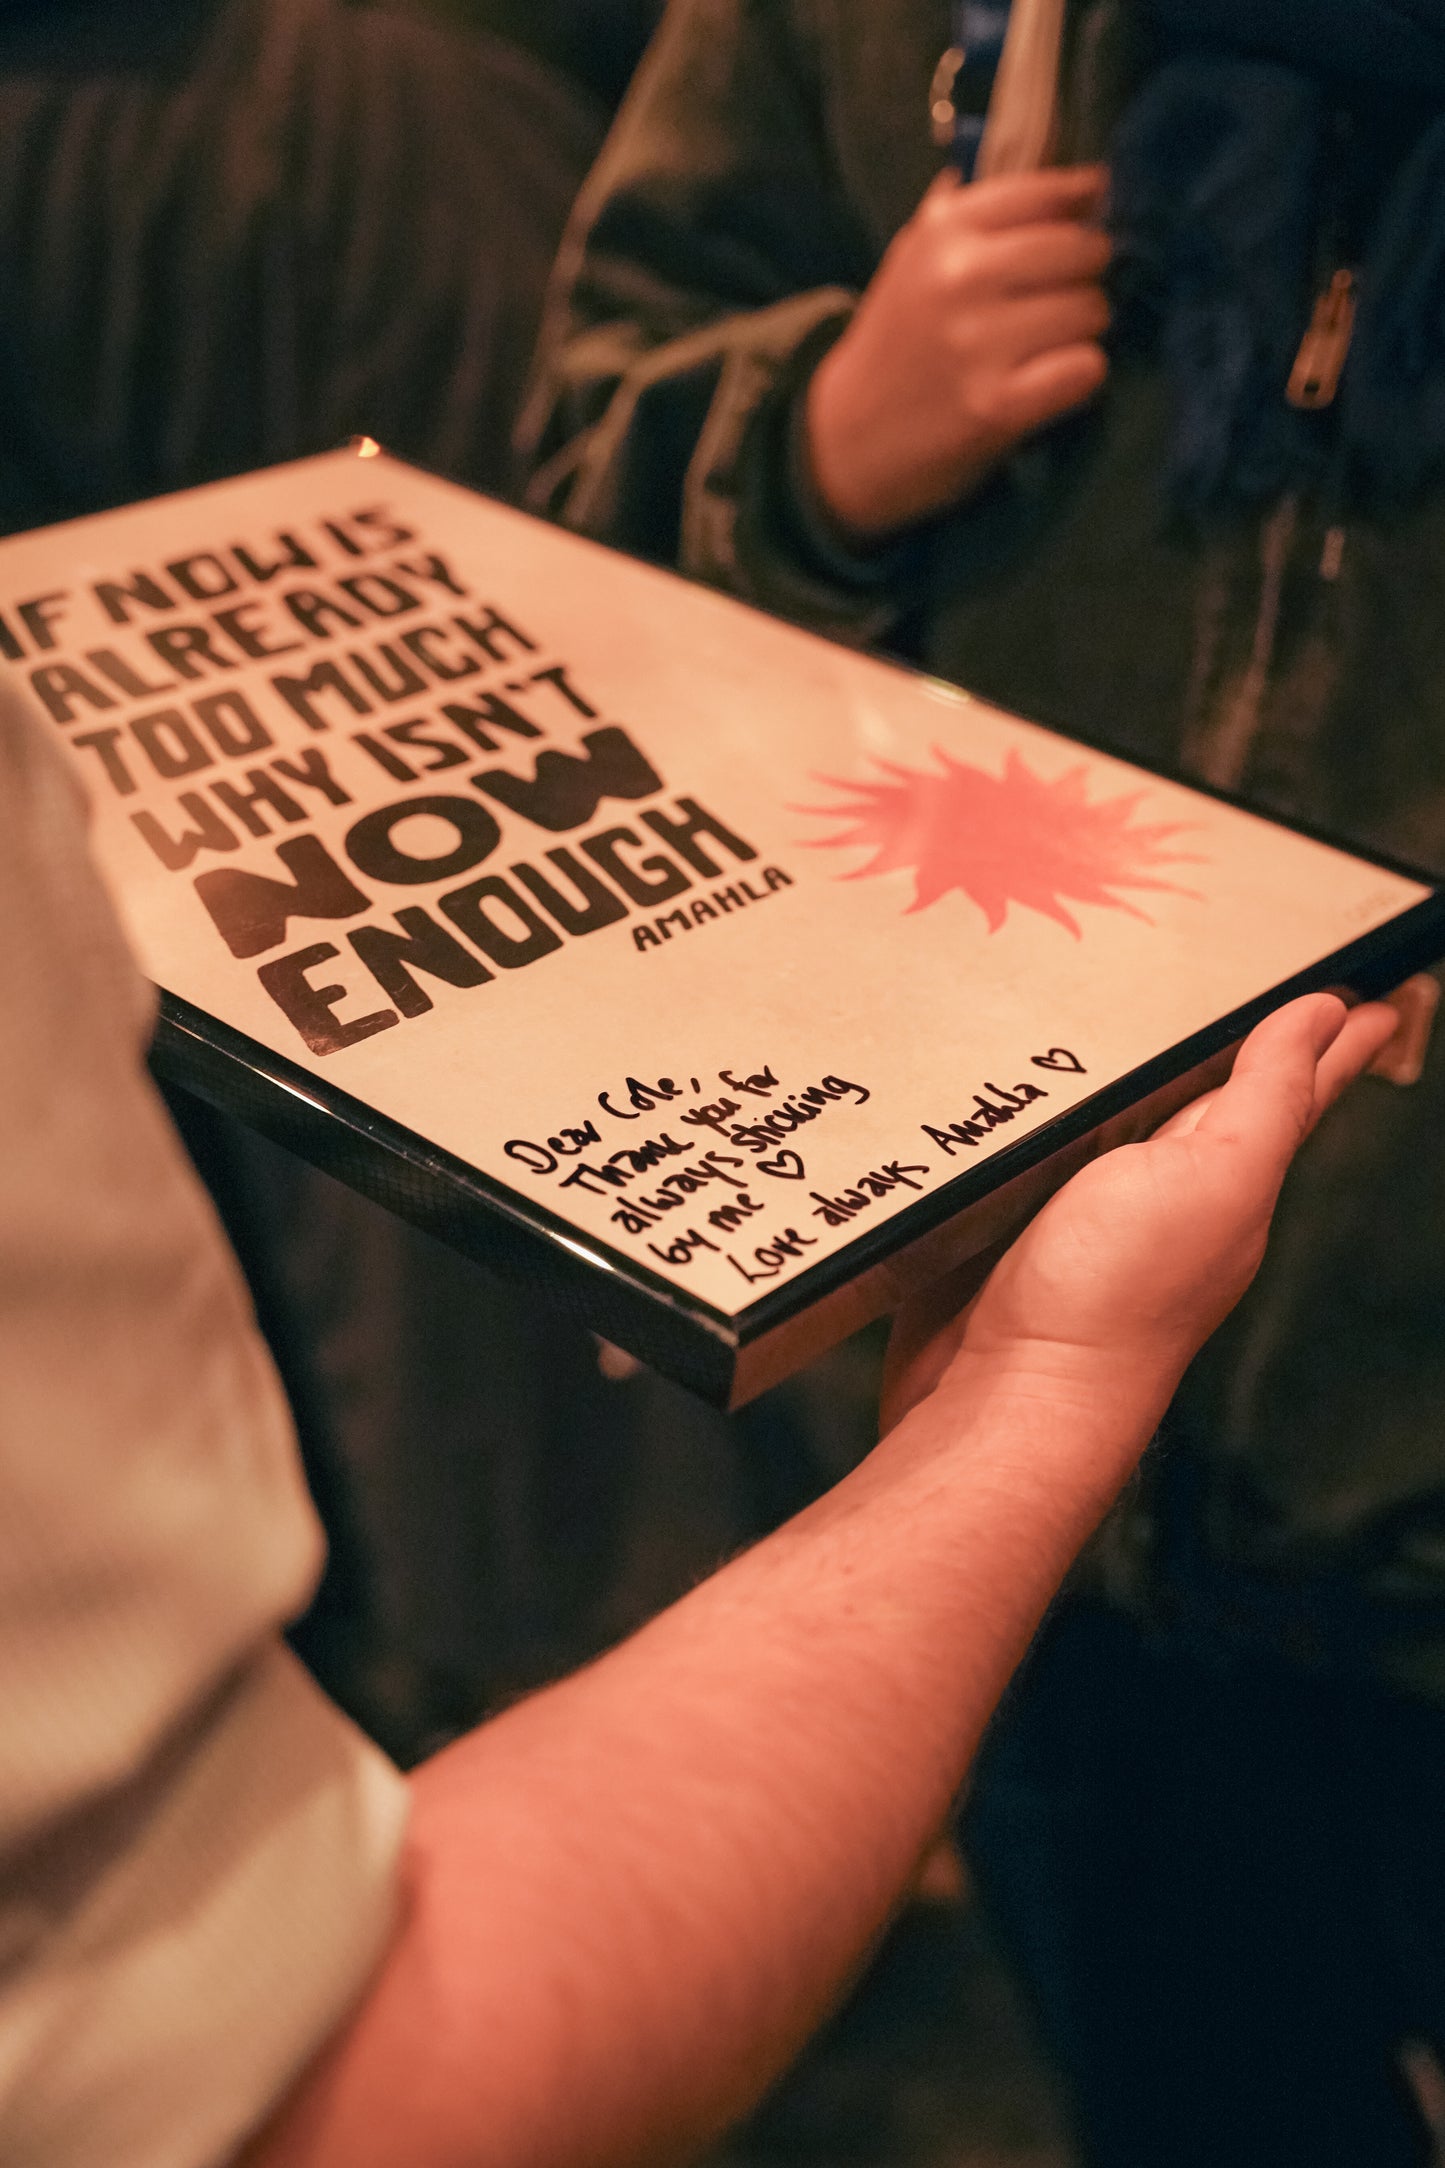 IF NOW IS
ALREADY
TOO MUCH
WHY ISN'T
NOW
ENOUGH
AMAHLA
Dear Cole,
Thank you for
always sticking
by me ♡
Love always Amahla ♡